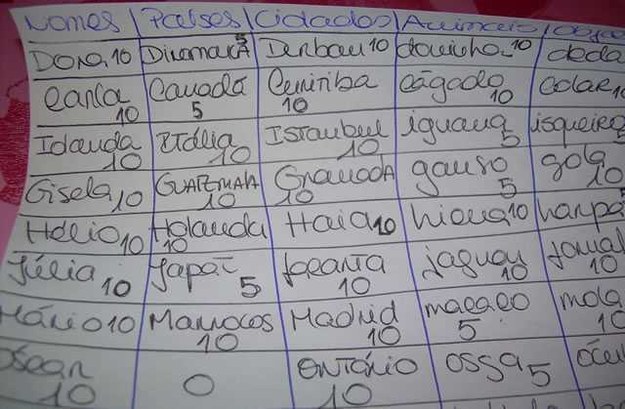 Nomes Países Cidades Animais
Dora 10 Dinamarca 5 Denbau 10 douinha 10 deda
Carla 10 Canadá 5 Curitiba 10 Cágado 10 Colar 10
Iolanda 10 Itália 10 Istanbul 10 iguana 5 isqueiro 5
Gisela 10 GUATEMALA 10 Granada 10 ganso 5 gola 10
Hélio 10 Holanda 10 Haia 10 hiena 10 harpa 5
Júlia 10 Japão 5 10 jaguar 10 jornal 10
Mário 10 Marrocos 10 Madrid 10 macaco 5 mola 10
Óscar 10 0 ONTÁRIO 10 OSSA 5 ócul